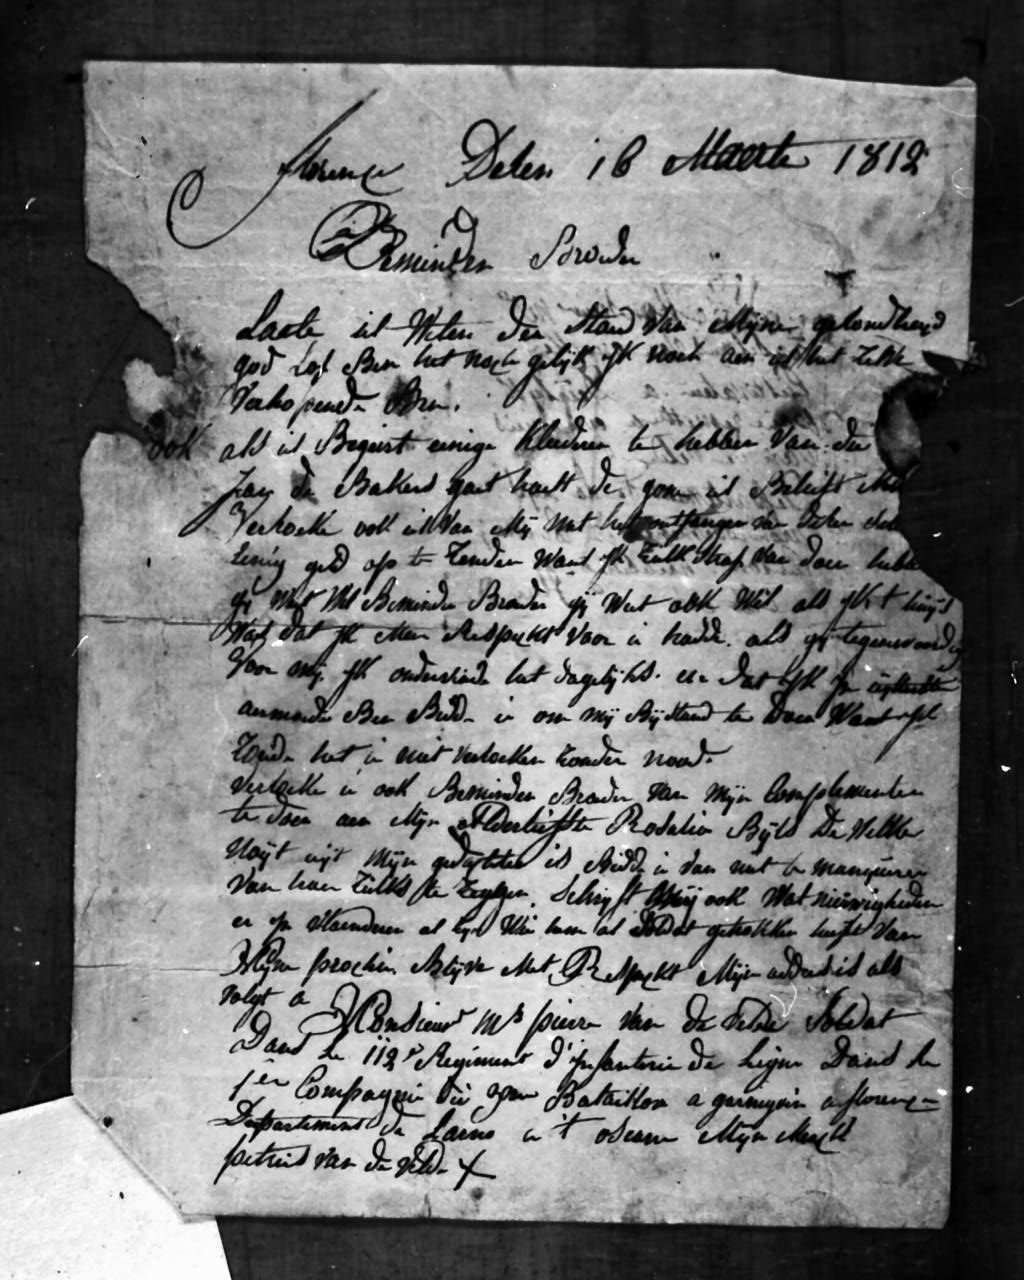 florence Desen 16 Maerte 1812
Beminden Broeder
Laete ul Weten den staed van Mijne gesondheyd
god Lof Ben het noch gelijk Jk noch aen ul het zelve
Verhopende Ben.
ook als ul Begeirt eenige kleederen te hebben van de
Jan de Bakers gaet haelt de gone ul Belieft
Versoeke ook ul van Mij met het ontfangen van desen
geld op te zenden Want Jk zulk van doen
gij Wet Wel Beminden Broeder gij Wet ook Wel als Jk t huijs
Was dat Jk Meer Respeckt voor u hadde als gij tegenwoordig
Voor mij Jk ondervinde het dagelijks. en dat Jk Jn
aermoede Ben Bidde u om mij Bijstand te doen Want Jk
zoude het u niet versoeken zonder nood.
Versoeke u ook Beminden Broeder van mijn Complementen
te doen aen Mijn Alderliefste Rosalia Bijls De Welke
Noijt uijt Mijn gedachten is Bidde u van niet te manqueren
Van haer zulks te zeggen. Schrijft Mij ook Wat nieuwigheden
er Jn Vlaenderen al zijn Wie hem al soldat getrokken heeft van
Mijne prochie. Blijve Met Respeckt Mijn addres is als
volgt a Monsieur Mr pierre van de velde Soldat
Dans Le 112e Regiment d'Jnfanterie de Ligne Dans le
1er Compagnie du Bataillon a garnison a florence
Departement de Larno Mijn
petrus van de velde X